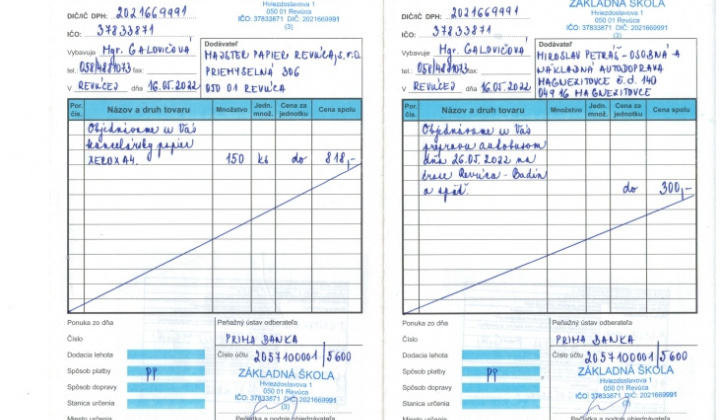 Hviezdoslavova 1
050 01 Revúca
IČO: 37833871 DIČ: 2021669991
(3)
DIČ/IČ DPH: 2021669991
IČO: 37833871
Vybavuje Mgr. GALOVIČOVÁ
tel. 058/4881073 fax
V REVÚCEJ dňa 16.05.2022
Dodávateľ
MAJSTER PAPIER REVÚCA, s.r.o.
PRIEMYSELNÁ 306
050 01 REVÚCA
Por. čís.
Názov a druh tovaru
Množstvo
Jedn. množ.
Cena za jednotku
Cena spolu
Objednávame u Vás
kancelársky papier
XEROX A4. 150 ks do 818,-
Ponuka zo dňa
Číslo
Dodacia lehota
Spôsob platby PP
Spôsob dopravy
Stanica určenia
Miesto určenia
Peňažný ústav odberateľa
PRIMA BANKA
Číslo účtu 2057100001 5600
ZÁKLADNÁ ŠKOLA
Hviezdoslavova 1
050 01 Revúca
IČO: 37833871 DIČ: 2021669991
(3)
Pečiatka a podpis objednávateľa
ZÁKLADNÁ ŠKOLA
Hviezdoslavova 1
050 01 Revúca
IČO: 37833871 DIČ: 2021669991
(3)
DIČ/IČ DPH: 2021669991
IČO: 37833871
Vybavuje Mgr. GALOVIČOVÁ
tel. 058/4881073 fax
V REVÚCEJ dňa 16.05.2022
Dodávateľ
MIROSLAV PETRÁŠ-OSOBNÁ A
NÁKLADNÁ AUTODOPRAVA
MAGNEZITOVCE č.d. 140
049 16 MAGNEZITOVCE
Por. čís.
Názov a druh tovaru
Množstvo
Jedn. množ.
Cena za jednotku
Cena spolu
Objednávame u Vás
prepravu autobusom
dňa 26.05.2022 na
trase Revúca - Badín
a späť. do 300,-
Ponuka zo dňa
Číslo
Dodacia lehota
Spôsob platby PP
Spôsob dopravy
Stanica určenia
Miesto určenia
Peňažný ústav odberateľa
PRIMA BANKA
Číslo účtu 2057100001 5600
ZÁKLADNÁ ŠKOLA
Hviezdoslavova 1
050 01 Revúca
IČO: 37833871 DIČ: 2021669991
(3)
Pečiatka a podpis objednávateľa